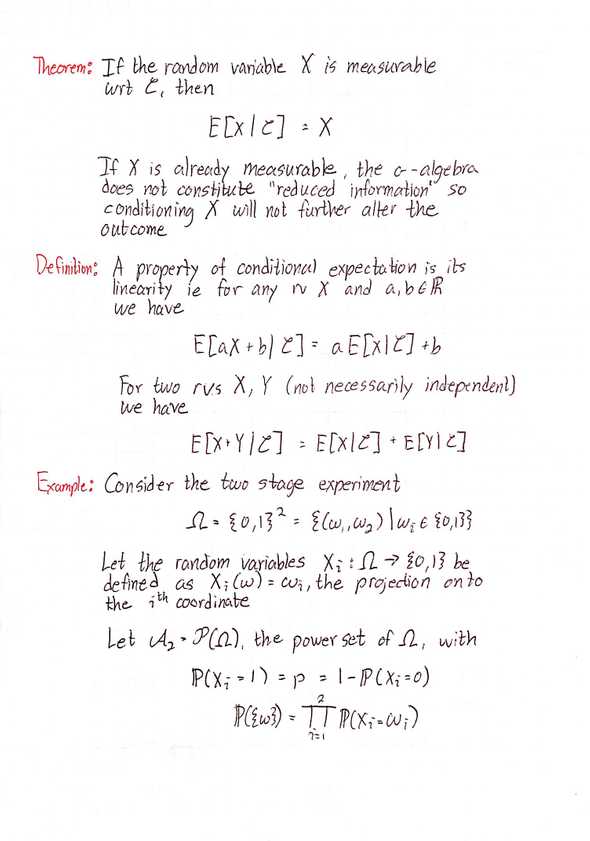 Theorem: If the random variable X is measurable
wrt C, then
E[X|C] = X
If X is already measurable, the σ-algebra
does not constitute "reduced information" so
conditioning X will not further alter the
outcome
Definition: A property of conditional expectation is its
linearity ie for any rv X and a,b∈ℝ
we have
E[aX+b|C] = aE[X|C]+b
For two rvs X, Y (not necessarily independent)
we have
E[X+Y|C] = E[X|C] + E[Y|C]
Example: Consider the two stage experiment
Ω = {0,1}² = {(ω₁,ω₂)|ωᵢ∈{0,1}}
Let the random variables Xᵢ: Ω → {0,1} be
defined as Xᵢ(ω) = ωᵢ, the projection onto
the iᵗʰ coordinate
Let A₂ = P(Ω), the power set of Ω, with
ℙ(Xᵢ=1) = p = 1-ℙ(Xᵢ=0)
ℙ({ω}) = ∏ᵢ₌₁² ℙ(Xᵢ=ωᵢ)